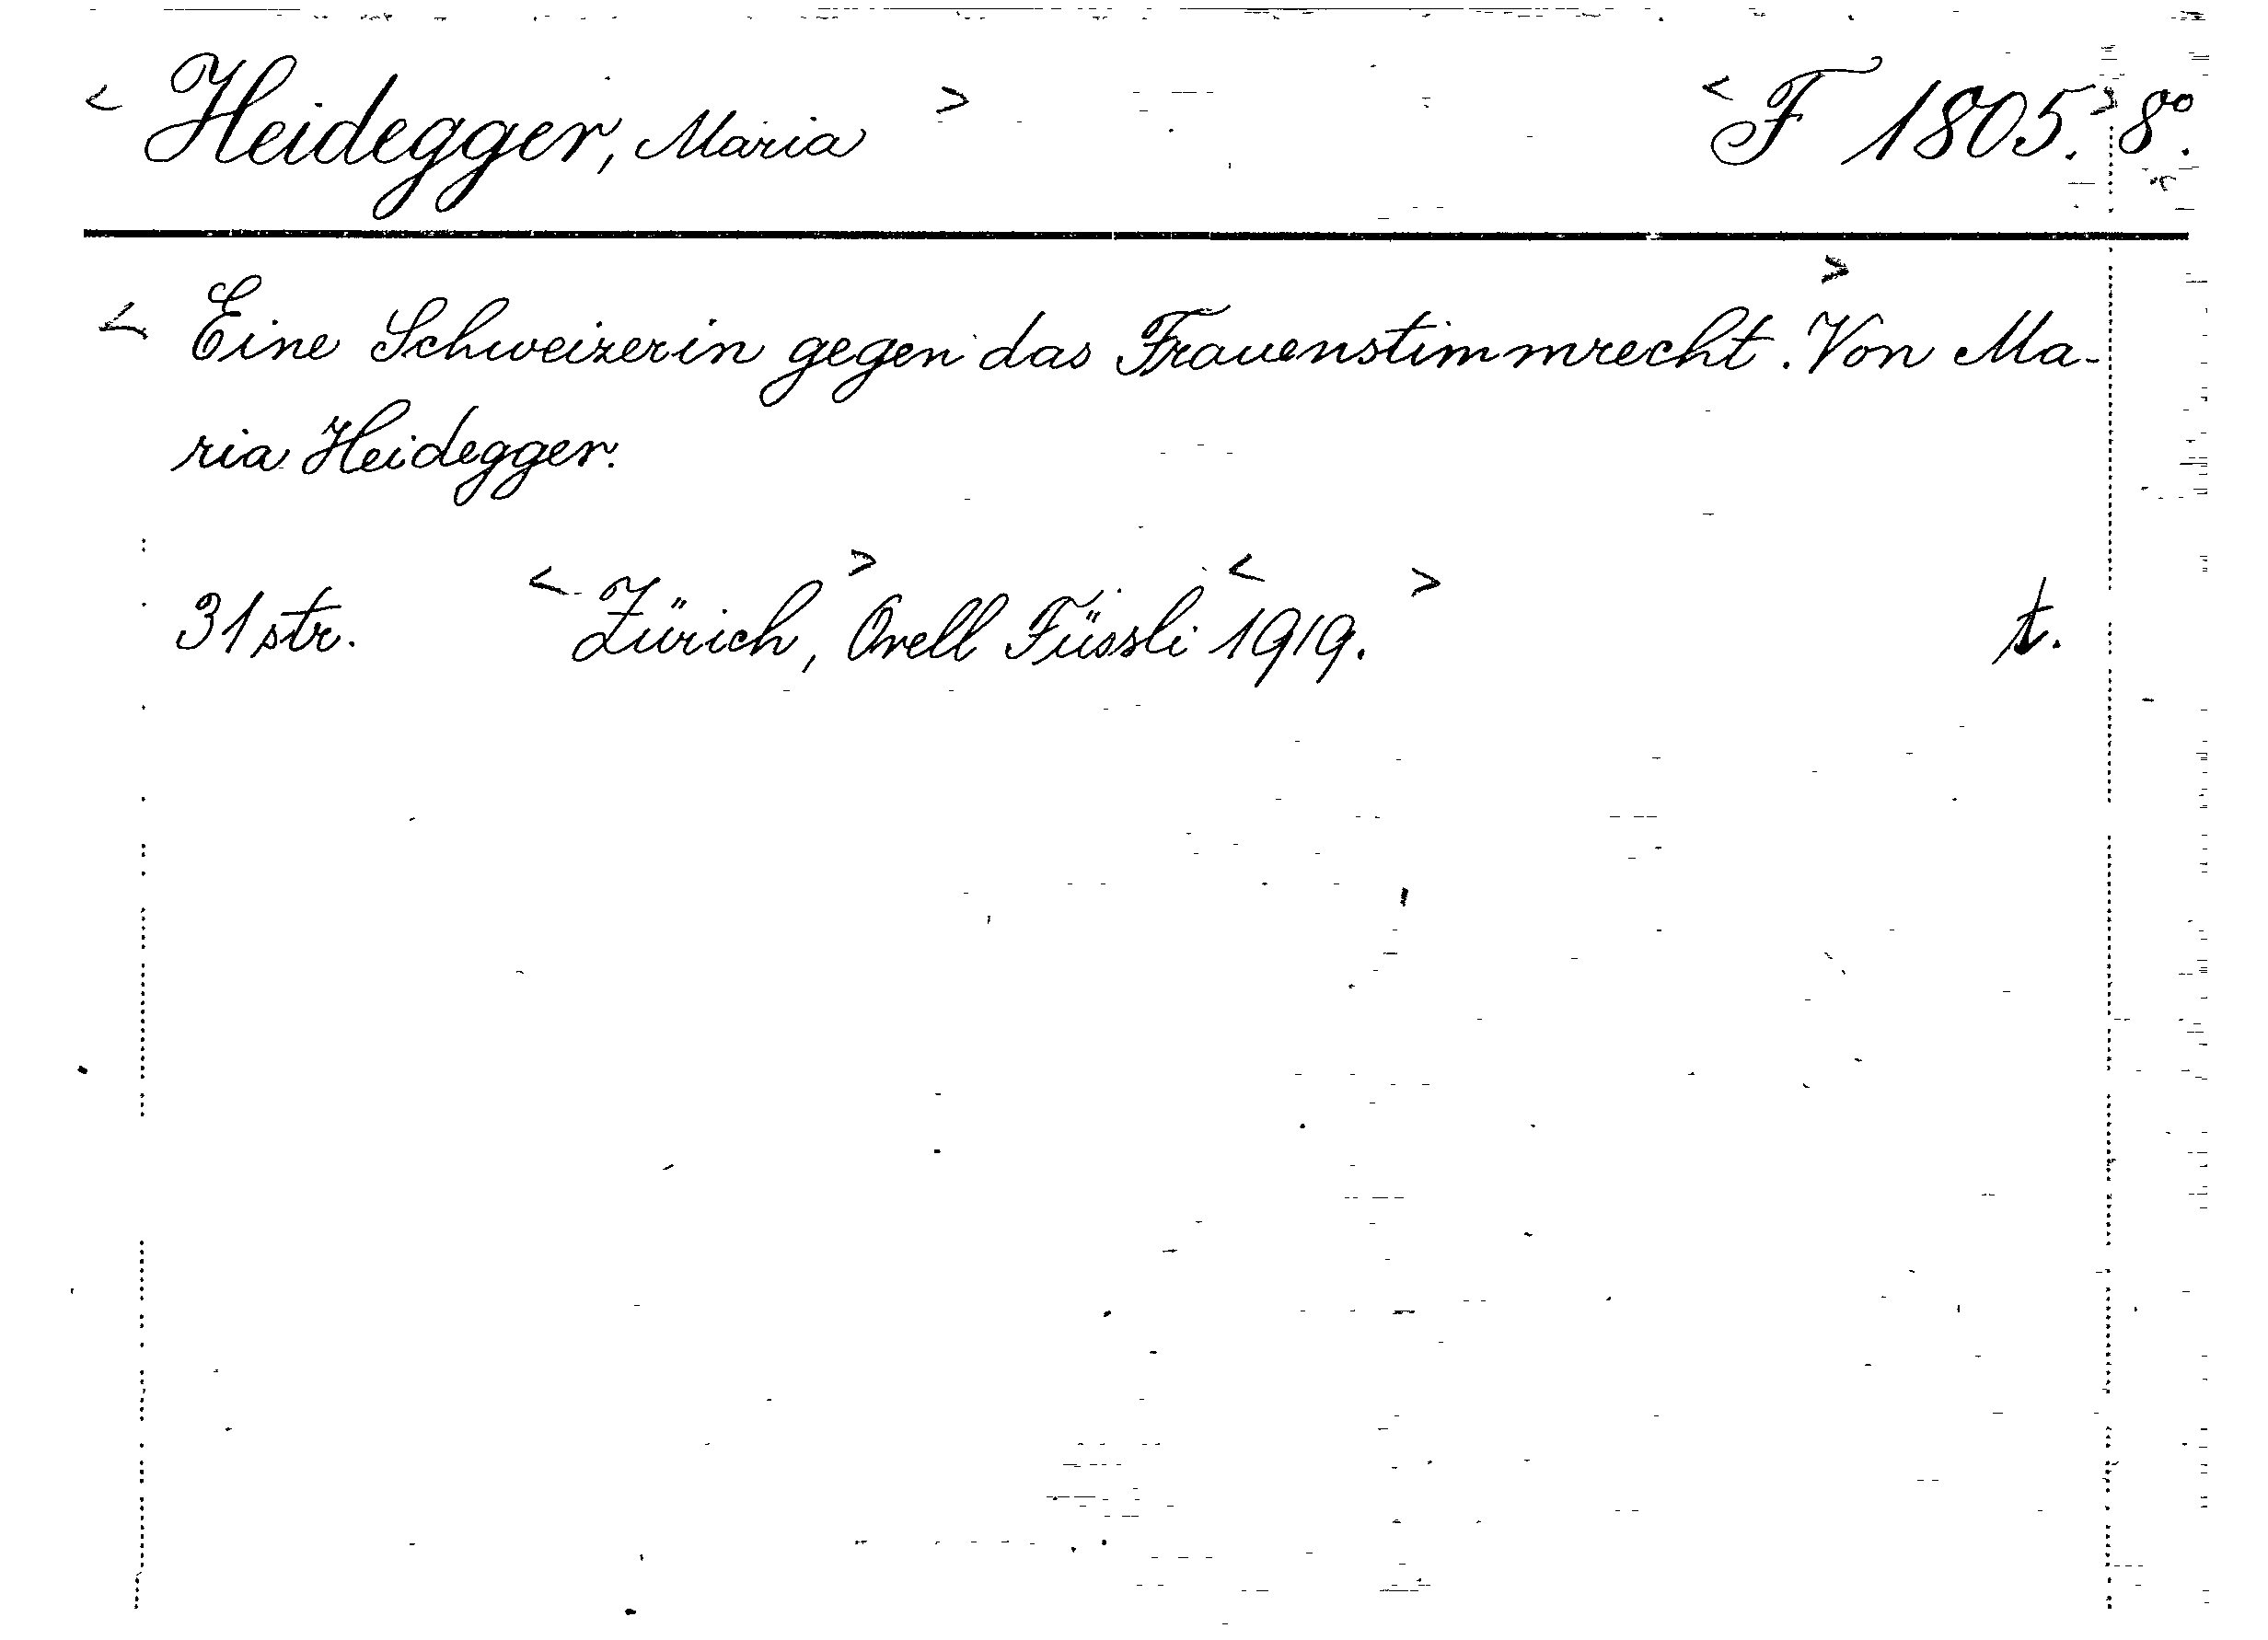 < Heidegger, Maria > < F 1805. > 8º.
< Eine Schweizerin gegen das Frauenstimmrecht. > Von Ma-
ria Heidegger.
31 str. < Zürich, > Orell Füssli < 1919. > t.